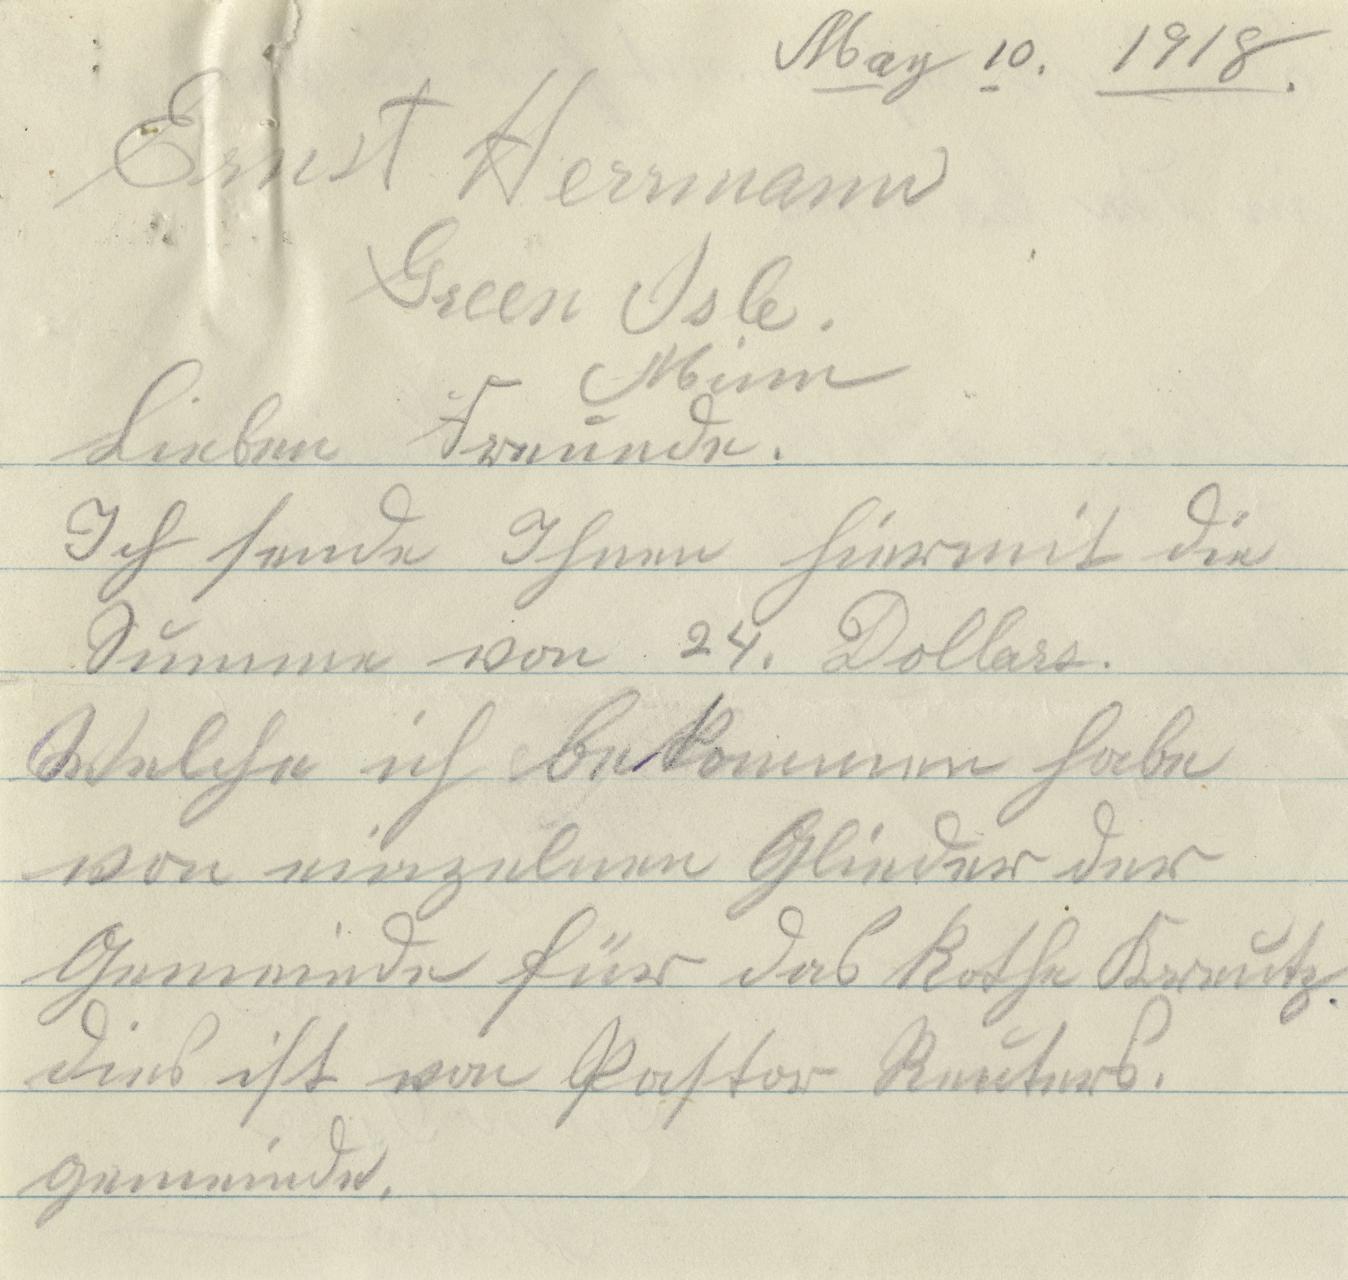 May 10. 1918.
Ernst Herrmann
Green Isle.
Minn
Lieben Freunde.
Ich sende Ihnen hiermit die
Summe von 24. Dollars.
Welche ich bekommen habe
von einzelnen Glieder der
Gemeinde für das Rothe Kreutz.
dies ist von Pastor Reuters.
gemeinde.